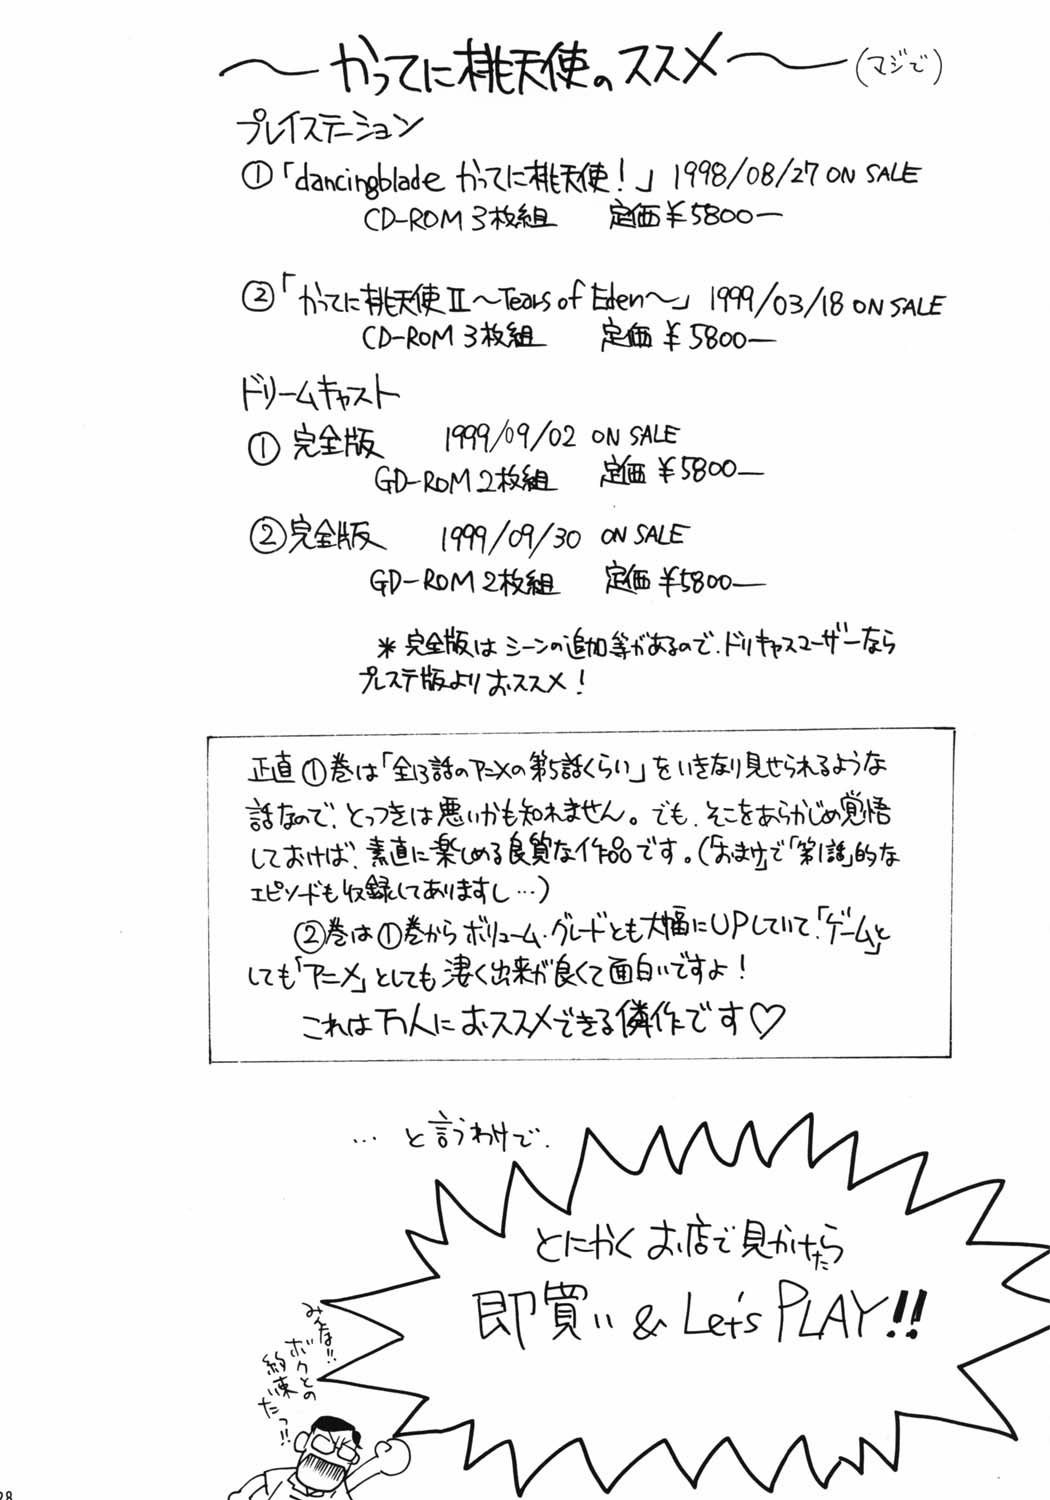 〜かってに桃天使のススメ〜(マジで)
プレイステーション
①「dancingblade かってに桃天使！」 1998/08/27 ON SALE
CD-ROM 3枚組 定価¥5800ー
②「かってに桃天使Ⅱ〜Tears of Eden〜」 1999/03/18 ON SALE
CD-ROM 3枚組 定価¥5800ー
ドリームキャスト
① 完全版 1999/09/02 ON SALE
GD-ROM 2枚組 定価¥5800ー
② 完全版 1999/09/30 ON SALE
GD-ROM 2枚組 定価¥5800ー
*完全版はシーンの追加等があるので、ドリキャスユーザーなら
プレステ版よりおススメ！
正直①巻は「全13話のアニメの第5話くらい」をいきなり見せられるような
話なので、とっつきは悪いかも知れません。でも、そこをあらかじめ覚悟
しておけば、素直に楽しめる良質な作品です。(「おまけ」で「第1話」的な
エピソードも収録してありますし…)
②巻は①巻からボリューム・グレードとも大幅にUPしていて、「ゲーム」と
しても「アニメ」としても凄く出来が良くて面白いですよ！
これは万人におススメできる傑作です♡
… と言うわけで、
とにかくお店で見かけたら
即買い & Let's PLAY!!
みんな!!
ボクとの
約束だっ!!
28